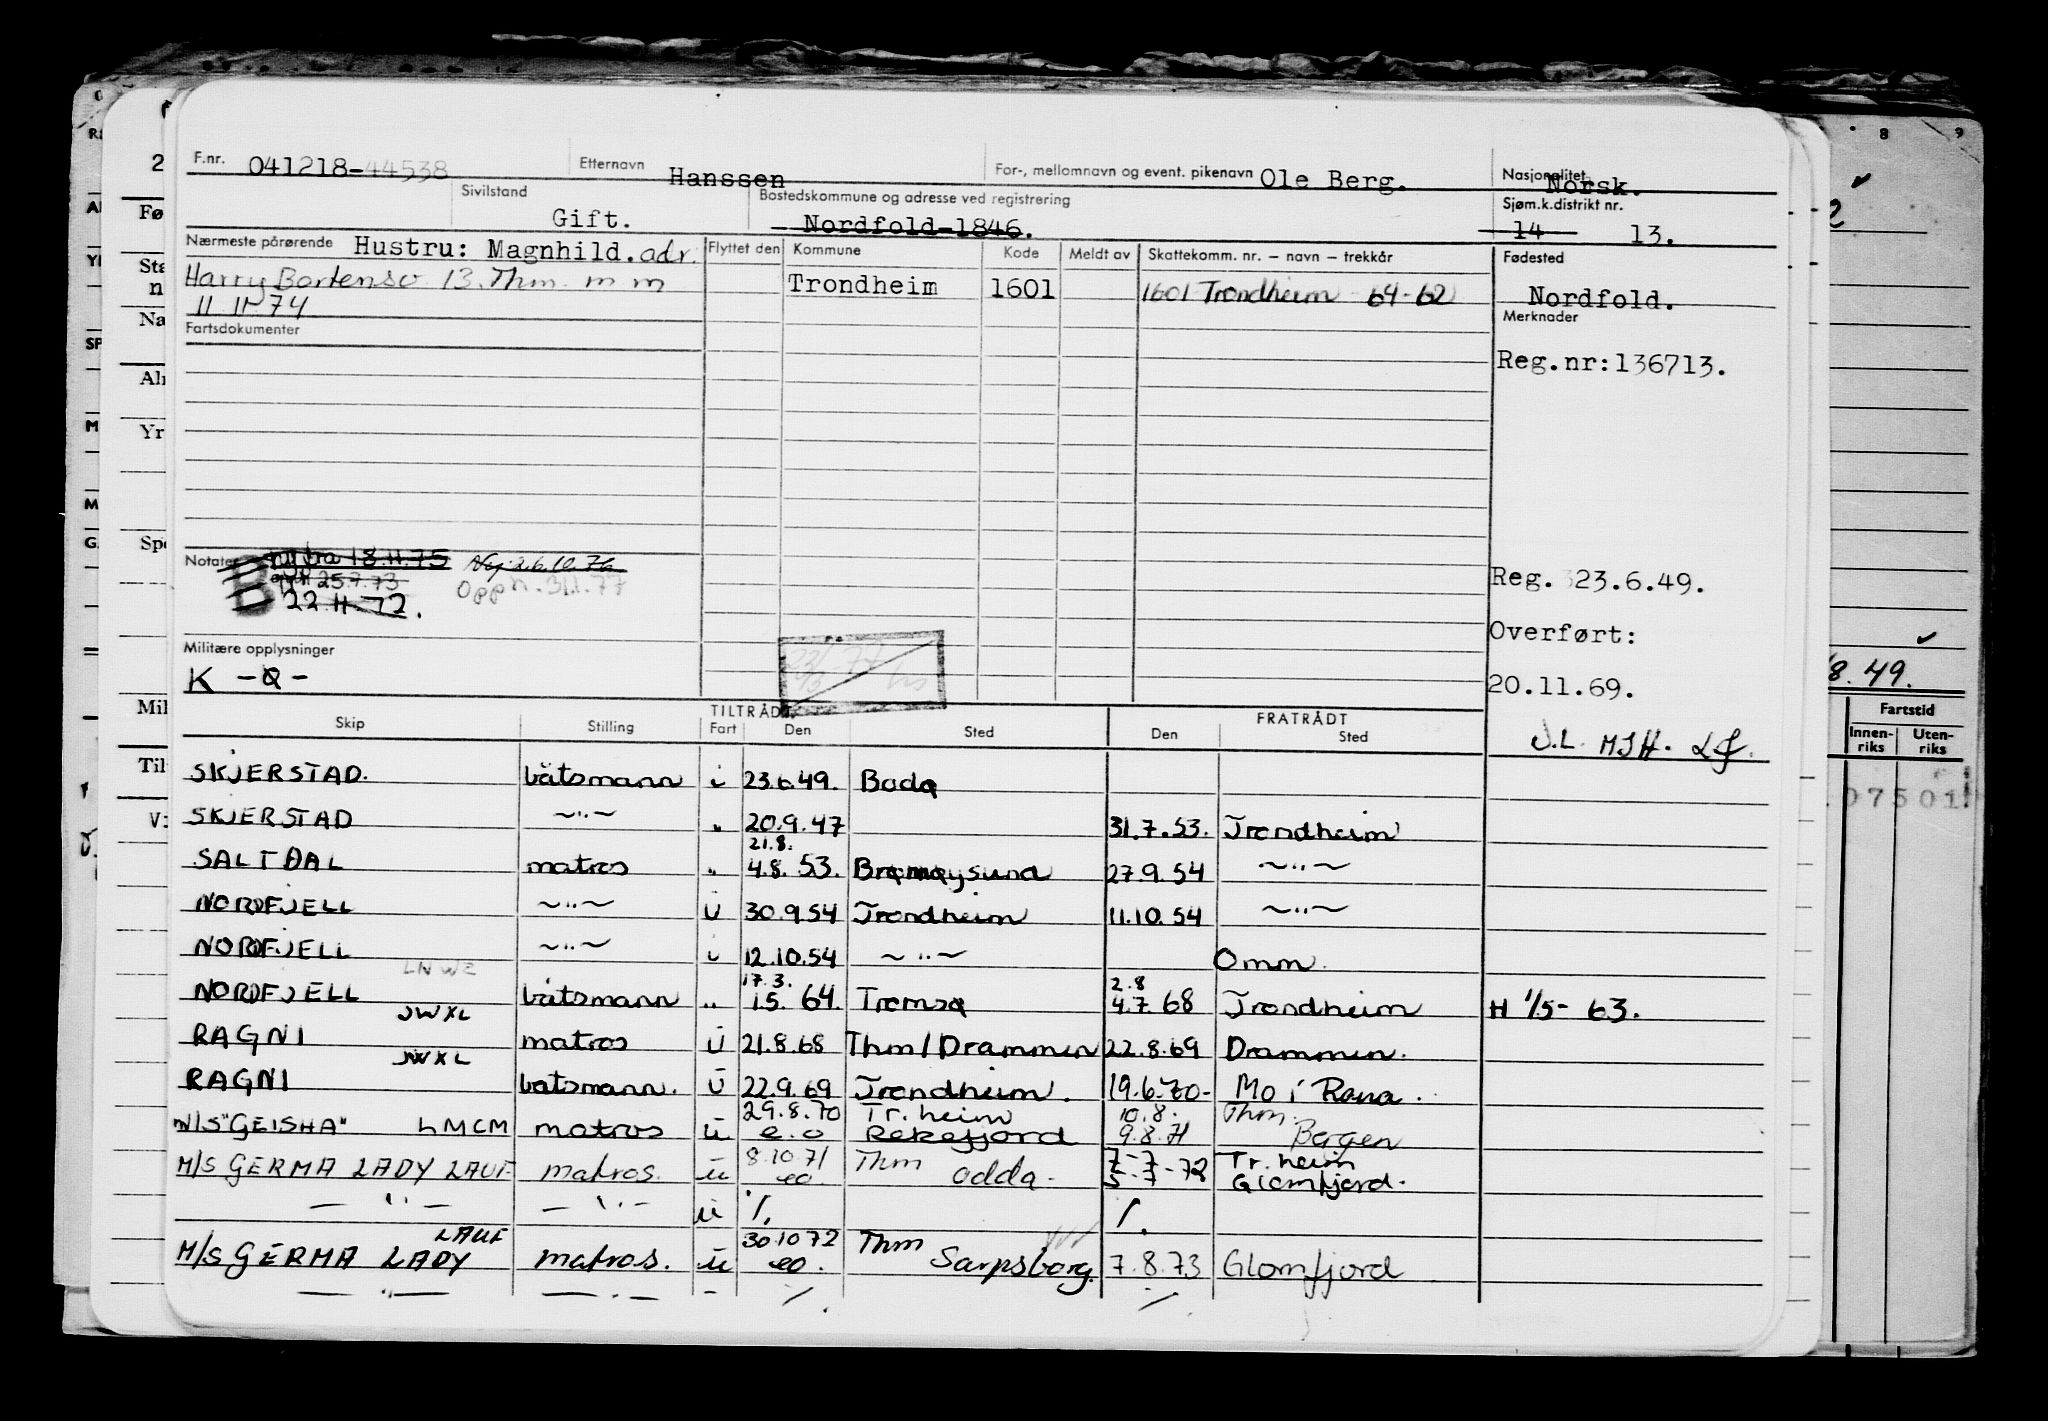 F.nr. 041218-44538 Etternavn Hanssen For-, mellomnavn og event. pikenavn Ole Berg. Nasjonalitet Norsk.
Sivilstand Gift. Bostedskommune og adresse ved registrering Nordfold-1846. Sjøm.k.distrikt nr. 14 13.
Nærmeste pårørende Hustru: Magnhild. adr. Flyttet den Kommune Kode Meldt av Skattekomm. nr. – navn – trekkår Fødested
Harry Bortensv 13. Thm. m m Trondheim 1601 1601 Trondheim 64-62 Nordfold.
11 11-74
Fartsdokumenter Merknader
Reg.nr:136713.
Notater 18.11.75 Ny 26.10.76
25.7.73 Opph. 31.1.77
B 22.11.72.
Reg. 23.6.49.
Overført:
Militære opplysninger
K -Q-
20.11.69.
Skip Stilling TILTRÅDT Fart Den Sted FRATRÅDT Den Sted
J.L. MJH.
SKJERSTAD. båtsmann i 23.6.49. Bodø
SKJERSTAD —"— " 20.9.47 31.7.53. Trondheim
21.8.
SALTDAL matros " 4.8. 53. Brønnøysund 27.9.54 —"—
NORDFJELL —"— U 30.9.54 Trondheim 11.10.54 —"—
NORDFJELL —"— i 12.10.54 —"— Omm.
LNWE 17.3. 2.8
NORDFJELL båtsmann " 1.5. 64. Tromsø 4.7.68 Trondheim H 1/5-63.
JWXL
RAGNI matros U 21.8.68 Thm/Drammen 22.8.69 Drammen.
JWXL
RAGNI batsmann. U 22.9.69 Trondheim. 19.6.70- Mo i Rana.
29.8.70 Tr.heim 10.8. Thm.
M/S "GEISHA" LMCM matros u e.o Rekefjord 9.8.71 Bergen
8.10.71 Thm 7-7 Tr.heim
M/S GERMA LADY LAUF matros. u eo. Odda. 5-7-72 Glomfjord.
— " — — " — u %. %.
LAUF 30.10.72 Thm
M/S GERMA LADY matros. u eo. Sarpsborg. 7.8.73 Glomfjord
— " — — " —
F.nr
Sta
Na
Yr
Mil
Til
8 9
8.49.
Fartstid
Innen-riks Uten-riks
07501